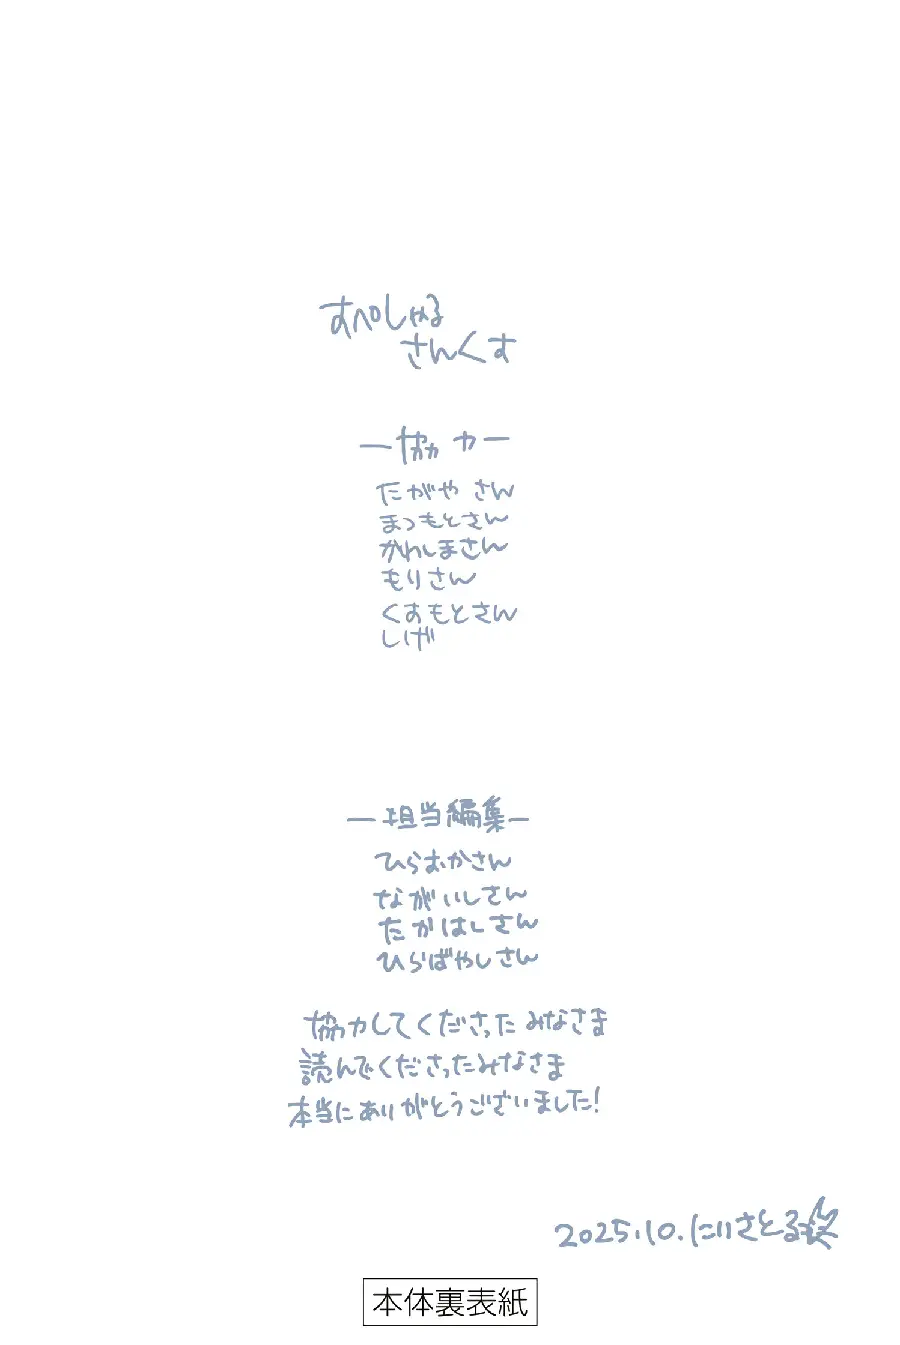 すぺしゃる
さんくす
ー協力ー
たがや さん
まつもとさん
かわしまさん
もりさん
くすもとさん
しげ
ー担当編集ー
ひらおかさん
ながいしさん
たかはしさん
ひらばやしさん
協力してくださったみなさま
読んでくださったみなさま
本当にありがとうございました!
2025.10.にいさとる
本体裏表紙